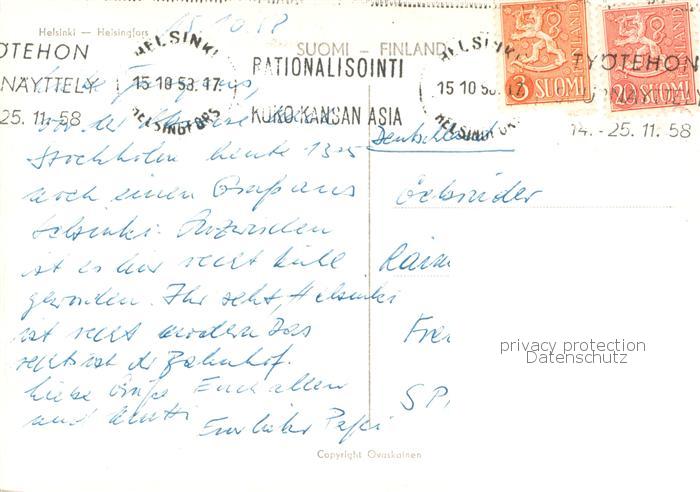 Helsinki — Helsingfors
15.10.58
SUOMI – FINLAND
ÖTEHON
NÄYTTELY
25. 11. 58
HELSINKI
15 10 58.17
HELSINGFORS
RATIONALISOINTI
KOKO KANSAN ASIA
HELSINKI
15 10 58.17
HELSINGFORS
3 SUOMI
FINLAND
20 SUOMI
FINLAND
TYÖTEHON
NÄYTTELY
14. -25. 11. 58
vor der
Stockholm heute 13
noch einen Gruß aus
Helsinki. Inzwischen
ist es hier recht kühl
geworden. Ihr seht, Helsinki
ist recht modern. Das
rechts ist der Bahnhof.
Liebe Grüße Euch allen
und Mutti
Euer lieber Papi
Deutschland
Gebrüder
Rain
SP
privacy protection
Datenschutz
Copyright Ovaskainen